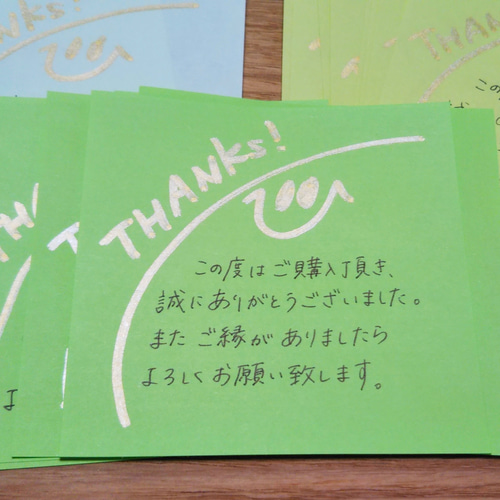 anks!
THAN
この
THANKs!
この度はご購入頂き、
誠にありがとうございました。
また ご縁が ありましたら
よろしく お願い致します。
TH
T
よ